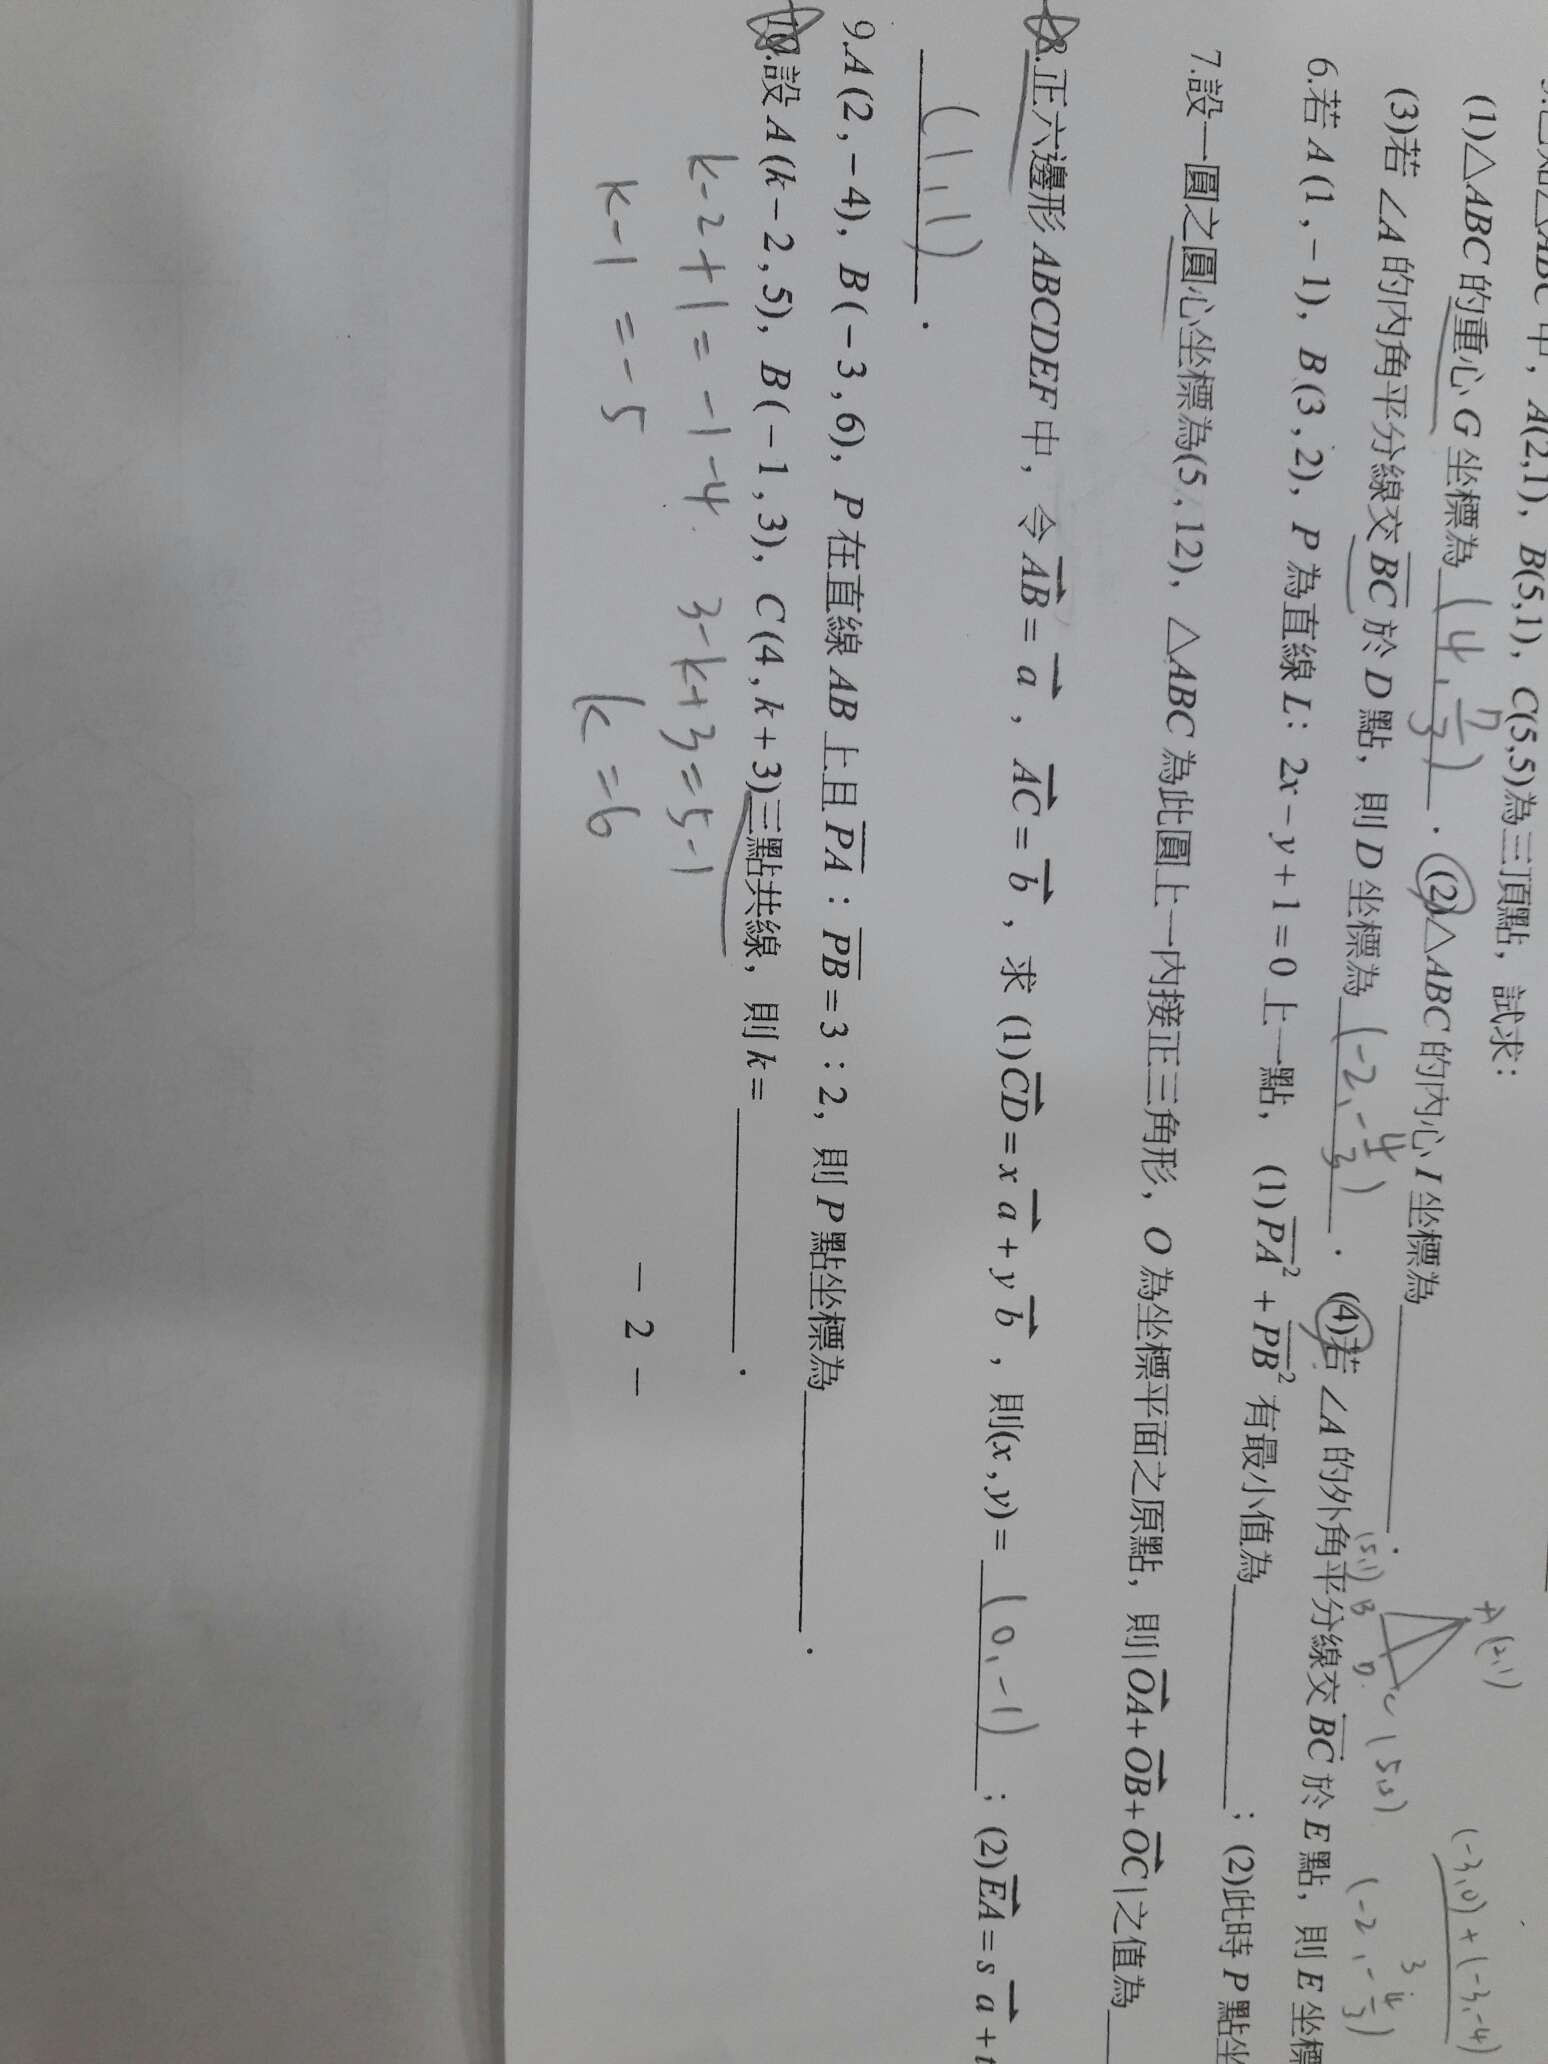 中，A(2,1)，B(5,1)，C(5,5)為三頂點，試求：
(1)△ABC的重心G坐標為(4,7/3)．(2)△ABC的內心I坐標為．
(3)若∠A的內角平分線交BC於D點，則D坐標為(-2,-4/3)．(4)若∠A的外角平分線交BC於E點，則E坐標
A(2,1)
(5,1) B
D
C (5,5)
(-3,0)+(-3,-4)
3
(-2,-4/3)
6.若A(1,-1)，B(3,2)，P為直線L：2x-y+1=0上一點，(1)PA²+PB²有最小值為；(2)此時P點坐
7.設一圓之圓心坐標為(5,12)，△ABC為此圓上一內接正三角形，O為坐標平面之原點，則|OA+OB+OC|之值為
8.正六邊形ABCDEF中，令AB=a，AC=b，求(1)CD=xa+yb，則(x,y)=(0,-1)；(2)EA=sa+t
(1,1)．
9.A(2,-4)，B(-3,6)，P在直線AB上且PA：PB=3：2，則P點坐標為．
10.設A(k-2,5)，B(-1,3)，C(4,k+3)三點共線，則k=．
k-2+1=-1-4 3-k+3=5-1
k-1=-5 k=6
- 2 -